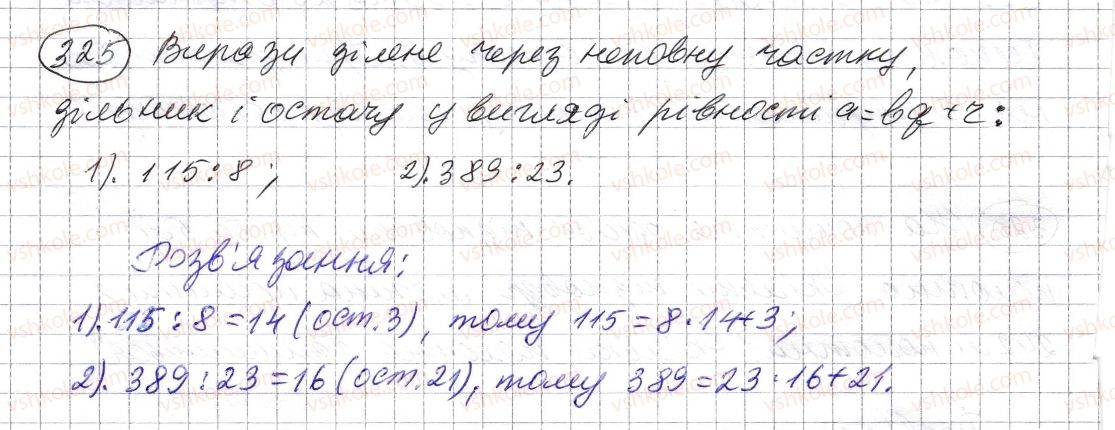 325 Вирази ділене через неповну частку,
дільник і остачу у вигляді рівності a=bq+r:
1). 115:8; 2). 389:23.
Розв'язання:
1). 115:8=14 (ост.3), тому 115=8·14+3;
2). 389:23=16 (ост.21), тому 389=23·16+21.